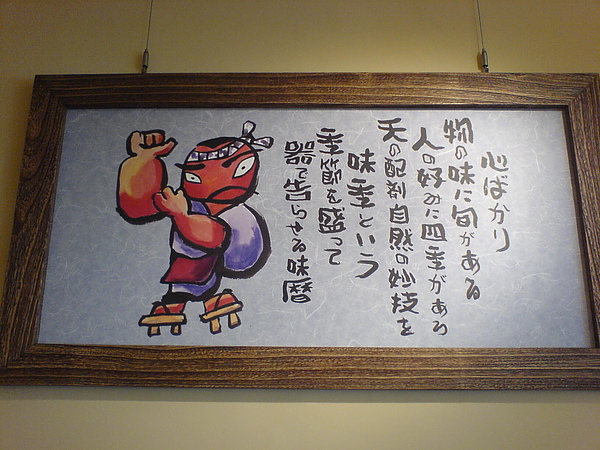 心ばかり
物の味に旬がある
人の好みに四季がある
天の配剤自然の妙技を
味季という
季節を盛って
器で告らせる味暦